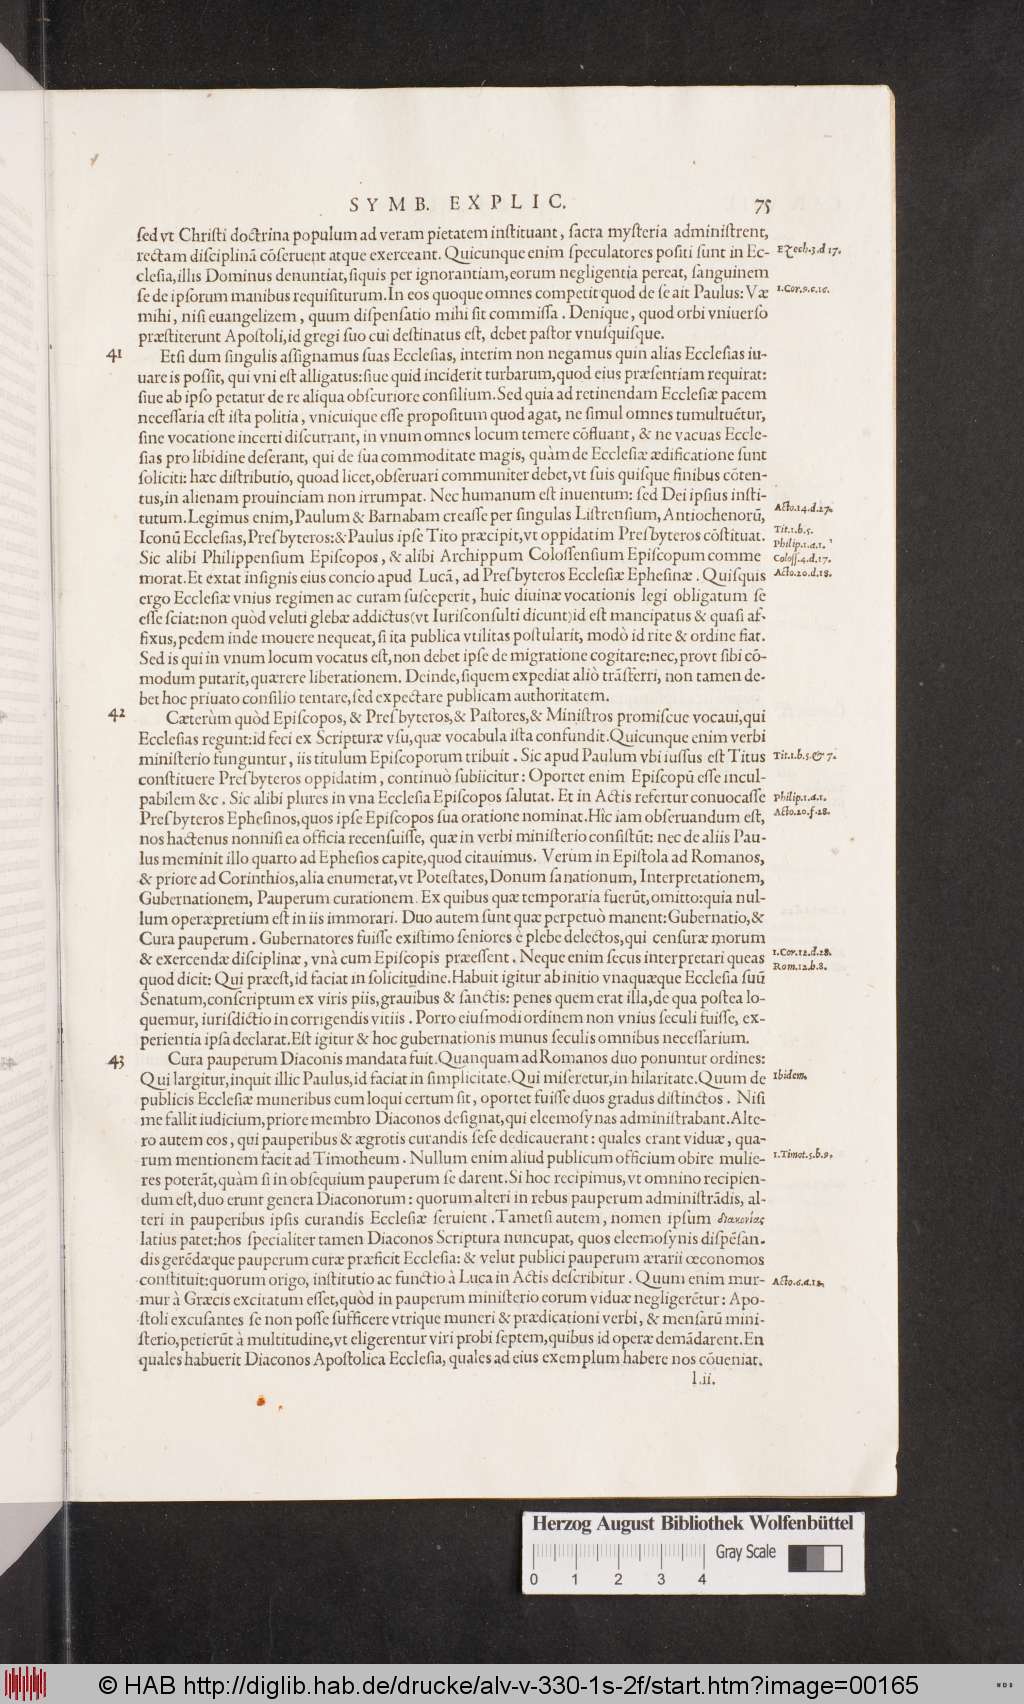 SYMB. EXPLIC. 75
ſed vt Chriſti doctrina populum ad veram pietatem inſtituant, ſacra myſteria adminiſtrent,
rectam diſciplinā cōſeruent atque exerceant. Quicunque enim ſpeculatores poſiti ſunt in Ec-
Ezech.3.d 17.
cleſia, illis Dominus denuntiat, ſiquis per ignorantiam, eorum negligentia pereat, ſanguinem
ſe de ipſorum manibus requiſiturum. In eos quoque omnes competit quod de ſe ait Paulus: Væ
1.Cor.9.c.16.
mihi, niſi euangelizem, quum diſpenſatio mihi ſit commiſſa. Denique, quod orbi vniuerſo
præſtiterunt Apoſtoli, id gregi ſuo cui deſtinatus eſt, debet paſtor vnuſquiſque.
41 Etſi dum ſingulis aſſignamus ſuas Eccleſias, interim non negamus quin alias Eccleſias iu-
uare is poſſit, qui vni eſt alligatus: ſiue quid inciderit turbarum, quod eius præſentiam requirat:
ſiue ab ipſo petatur de re aliqua obſcuriore conſilium. Sed quia ad retinendam Eccleſiæ pacem
neceſſaria eſt iſta politia, vnicuique eſſe propoſitum quod agat, ne ſimul omnes tumultuētur,
ſine vocatione incerti diſcurrant, in vnum omnes locum temere cōfluant, & ne vacuas Eccle-
ſias pro libidine deſerant, qui de ſua commoditate magis, quàm de Eccleſiæ ædificatione ſunt
ſoliciti: hæc diſtributio, quoad licet, obſeruari communiter debet, vt ſuis quiſque finibus cōten-
tus, in alienam prouinciam non irrumpat. Nec humanum eſt inuentum: ſed Dei ipſius inſti-
tutum. Legimus enim, Paulum & Barnabam creaſſe per ſingulas Liſtrenſium, Antiochenorū,
Acto.14.d.27.
Iconū Eccleſias, Preſbyteros: & Paulus ipſe Tito præcipit, vt oppidatim Preſbyteros cōſtituat.
Tit.1.b.5.
Philip.1.a.1.
Sic alibi Philippenſium Epiſcopos, & alibi Archippum Coloſſenſium Epiſcopum comme
Coloſſ.4.d.17.
morat. Et extat inſignis eius concio apud Lucā, ad Preſbyteros Eccleſiæ Epheſinæ. Quiſquis
Acto.20.d.18.
ergo Eccleſiæ vnius regimen ac curam ſuſceperit, huic diuinæ vocationis legi obligatum ſe
eſſe ſciat: non quòd veluti glebæ addictus (vt Iuriſconſulti dicunt) id eſt mancipatus & quaſi af-
fixus, pedem inde mouere nequeat, ſi ita publica vtilitas poſtularit, modò id rite & ordine fiat.
Sed is qui in vnum locum vocatus eſt, non debet ipſe de migratione cogitare: nec, provt ſibi cō-
modum putarit, quærere liberationem. Deinde, ſiquem expediat aliò trāſferri, non tamen de-
bet hoc priuato conſilio tentare, ſed expectare publicam authoritatem.
42 Cæterùm quòd Epiſcopos, & Preſbyteros, & Paſtores, & Miniſtros promiſcue vocaui, qui
Eccleſias regunt: id feci ex Scripturæ vſu, quæ vocabula iſta confundit. Quicunque enim verbi
miniſterio funguntur, iis titulum Epiſcoporum tribuit. Sic apud Paulum vbi iuſſus eſt Titus
Tit.1.b.5.& 7.
conſtituere Preſbyteros oppidatim, continuò ſubiicitur: Oportet enim Epiſcopū eſſe incul-
pabilem &c. Sic alibi plures in vna Eccleſia Epiſcopos ſalutat. Et in Actis refertur conuocaſſe
Philip.1.a.1.
Preſbyteros Epheſinos, quos ipſe Epiſcopos ſua oratione nominat. Hîc iam obſeruandum eſt,
Acto.20.f.28.
nos hactenus nonniſi ea officia recenſuiſſe, quæ in verbi miniſterio conſiſtūt: nec de aliis Pau-
lus meminit illo quarto ad Epheſios capite, quod citauimus. Verùm in Epiſtola ad Romanos,
& priore ad Corinthios, alia enumerat, vt Poteſtates, Donum ſanationum, Interpretationem,
Gubernationem, Pauperum curationem. Ex quibus quæ temporaria fuerūt, omitto: quia nul-
lum operæpretium eſt in iis immorari. Duo autem ſunt quæ perpetuò manent: Gubernatio, &
Cura pauperum. Gubernatores fuiſſe exiſtimo ſeniores è plebe delectos, qui cenſuræ morum
& exercendæ diſciplinæ, vnà cum Epiſcopis præeſſent. Neque enim ſecus interpretari queas
1.Cor.12.d.28.
quod dicit: Qui præeſt, id faciat in ſolicitudine. Habuit igitur ab initio vnaquæque Eccleſia ſuū
Rom.12.b.8.
Senatum, conſcriptum ex viris piis, grauibus & ſanctis: penes quem erat illa, de qua poſtea lo-
quemur, iuriſdictio in corrigendis vitiis. Porro eiuſmodi ordinem non vnius ſeculi fuiſſe, ex-
perientia ipſa declarat. Eſt igitur & hoc gubernationis munus ſeculis omnibus neceſſarium.
43 Cura pauperum Diaconis mandata fuit. Quanquam ad Romanos duo ponuntur ordines:
Qui largitur, inquit illic Paulus, id faciat in ſimplicitate. Qui miſeretur, in hilaritate. Quum de
Ibidem.
publicis Eccleſiæ muneribus eum loqui certum ſit, oportet fuiſſe duos gradus diſtinctos. Niſi
me fallit iudicium, priore membro Diaconos deſignat, qui eleemoſynas adminiſtrabant. Alte-
ro autem eos, qui pauperibus & ægrotis curandis ſeſe dedicauerant: quales erant viduæ, qua-
rum mentionem facit ad Timotheum. Nullum enim aliud publicum officium obire mulie-
1.Timot.5.b.9.
res poterāt, quàm ſi in obſequium pauperum ſe darent. Si hoc recipimus, vt omnino recipien-
dum eſt, duo erunt genera Diaconorum: quorum alteri in rebus pauperum adminiſtrādis, al-
teri in pauperibus ipſis curandis Eccleſiæ ſeruient. Tametſi autem, nomen ipſum διακονίας
latius patet: hos ſpecialiter tamen Diaconos Scriptura nuncupat, quos eleemoſynis diſpēſan-
dis gerēdæque pauperum curæ præficit Eccleſia: & velut publici pauperum ærarii œconomos
conſtituit: quorum origo, inſtitutio ac functio à Luca in Actis deſcribitur. Quum enim mur-
Acto.6.a.1.
mur à Græcis excitatum eſſet, quòd in pauperum miniſterio eorum viduæ negligerētur: Apo-
ſtoli excuſantes ſe non poſſe ſufficere vtrique muneri & prædicationi verbi, & menſarū mini-
ſterio, petierūt à multitudine, vt eligerentur viri probi ſeptem, quibus id operæ demādarent. En
quales habuerit Diaconos Apoſtolica Eccleſia, quales ad eius exemplum habere nos cōueniat.
l.ii.
Herzog August Bibliothek Wolfenbüttel
Gray Scale
0 1 2 3 4
© HAB http://diglib.hab.de/drucke/alv-v-330-1s-2f/start.htm?image=00165